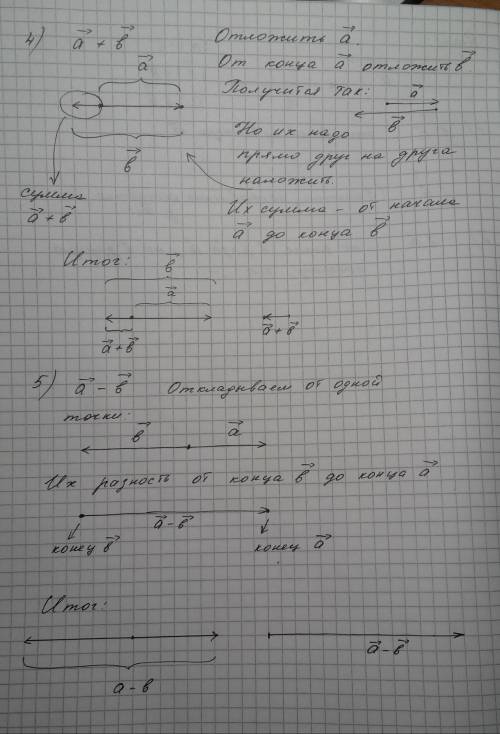 4) a⃗ + в⃗ Отложить a⃗.
От конца a⃗ отложить в⃗
a⃗
Получится так: a⃗
в⃗
Но их надо
прямо друг на друга
наложить.
в⃗
сумма
a⃗ + в⃗
Их сумма – от начала
a⃗ до конца в⃗
Итог: в⃗
a⃗
a⃗ + в⃗ a⃗ + в⃗
5) a⃗ – в⃗ Откладываем от одной
точки:
в⃗ a⃗
Их разность от конца в⃗ до конца a⃗
a⃗ – в⃗
конец в⃗ конец a⃗
Итог:
a⃗ – в⃗
a – в